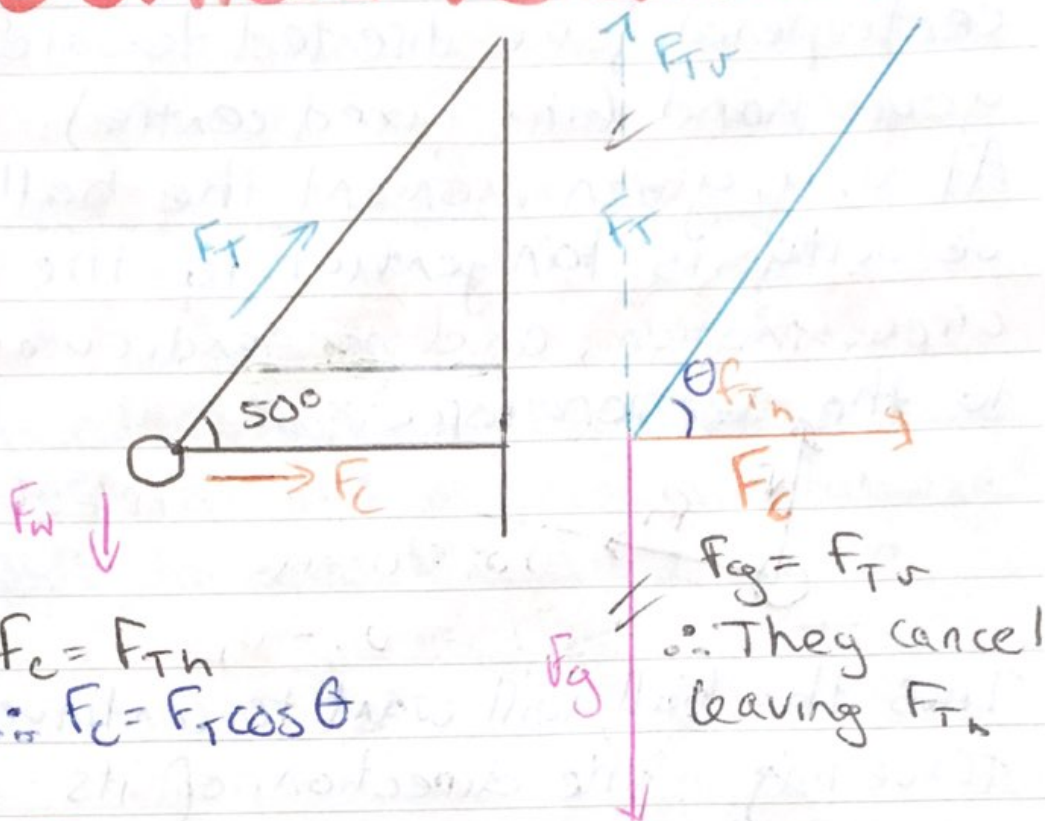 F_T
50°
F_c
F_w
F_c = F_Th
∴ F_c = F_T cos θ
F_Tv
F_T
θ
F_Th
F_c
F_g
F_g = F_Tv
∴ They cancel
leaving F_Th